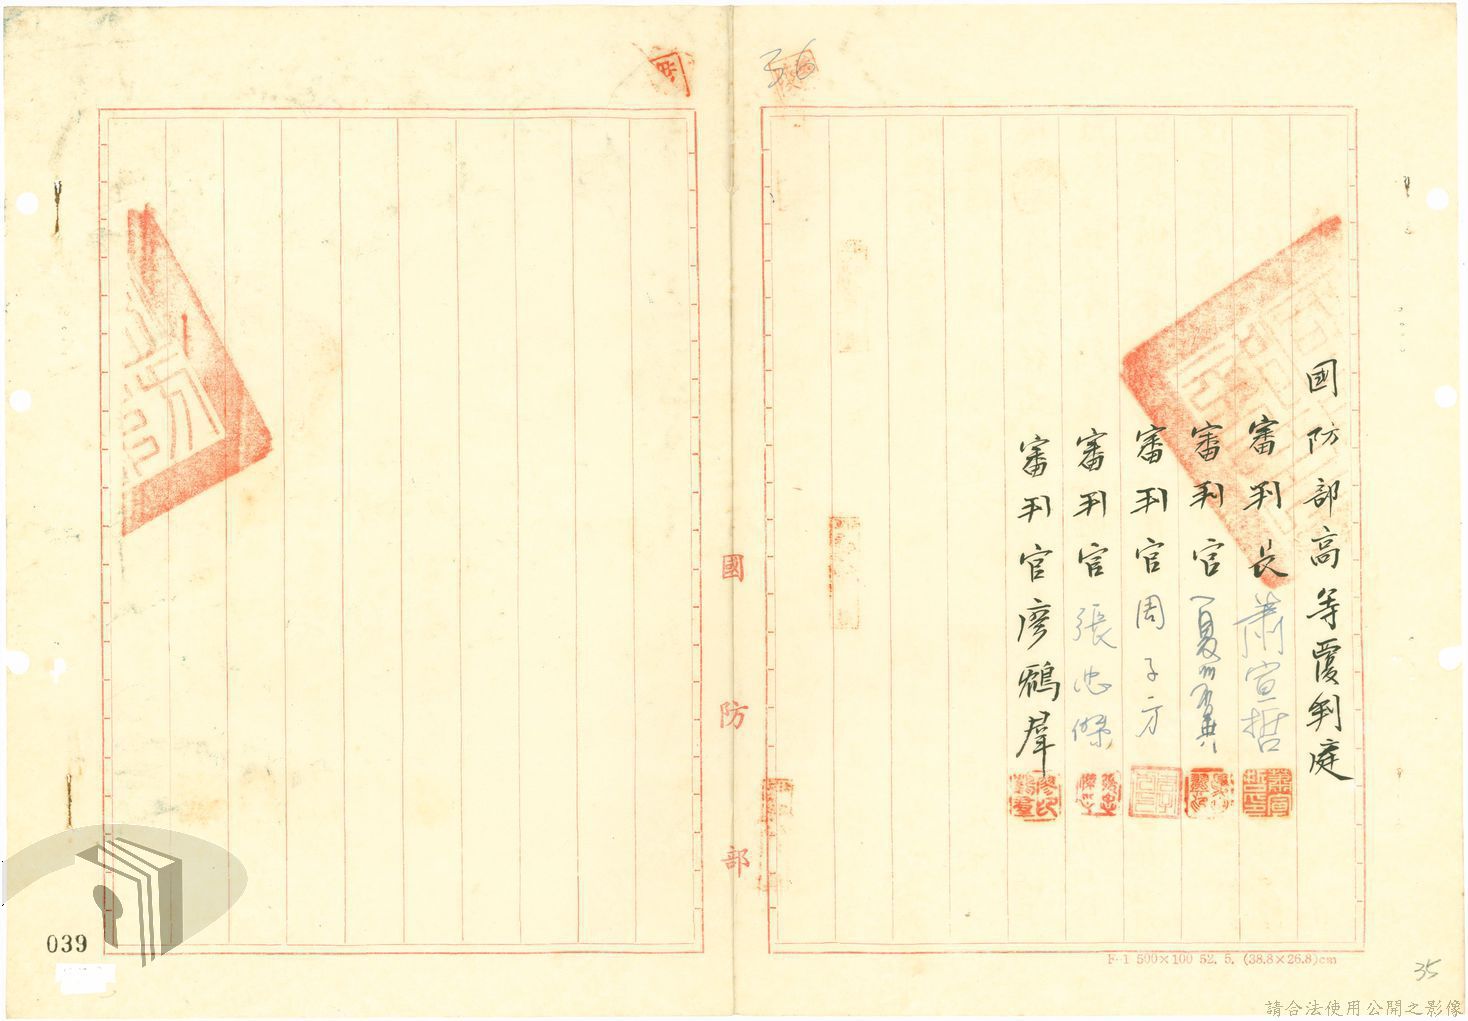 36
國防部高等覆判庭
審判長 蕭宣哲
審判官
審判官 周子方
審判官 張忠傑
審判官 廖鵷羣
國防部
F-1 500×100 52. 5. (38.8×26.8)cm
35
039
請合法使用公開之影像